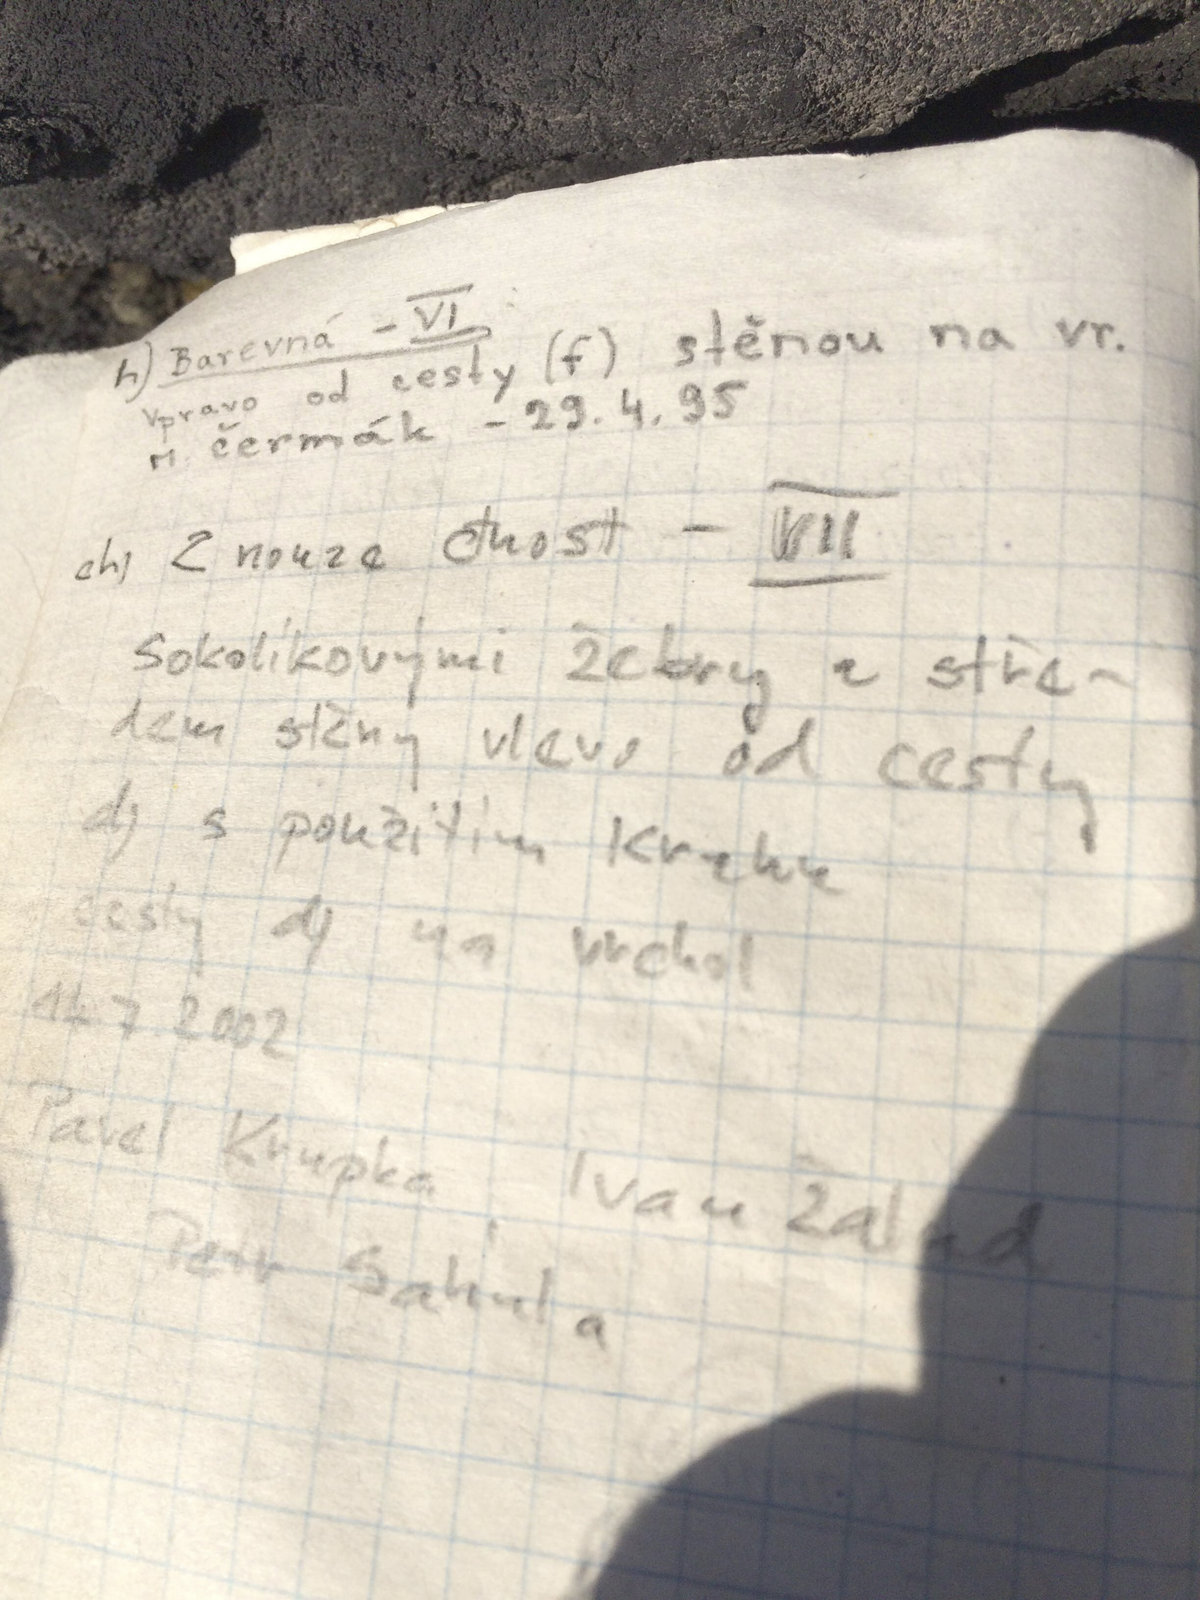 h) Barevná - VI
vpravo od cesty (f) stěnou na vr.
M. Čermák - 29.4.95
ch) Z nouze ctnost - VII
Sokolíkovými žebry a stře-
dem stěny vlevo od cesty
d) s použitím kruhu
cesty d) na vrchol
14 7 2002
Pavel Krupka Ivan Žalud
Petr Sahula